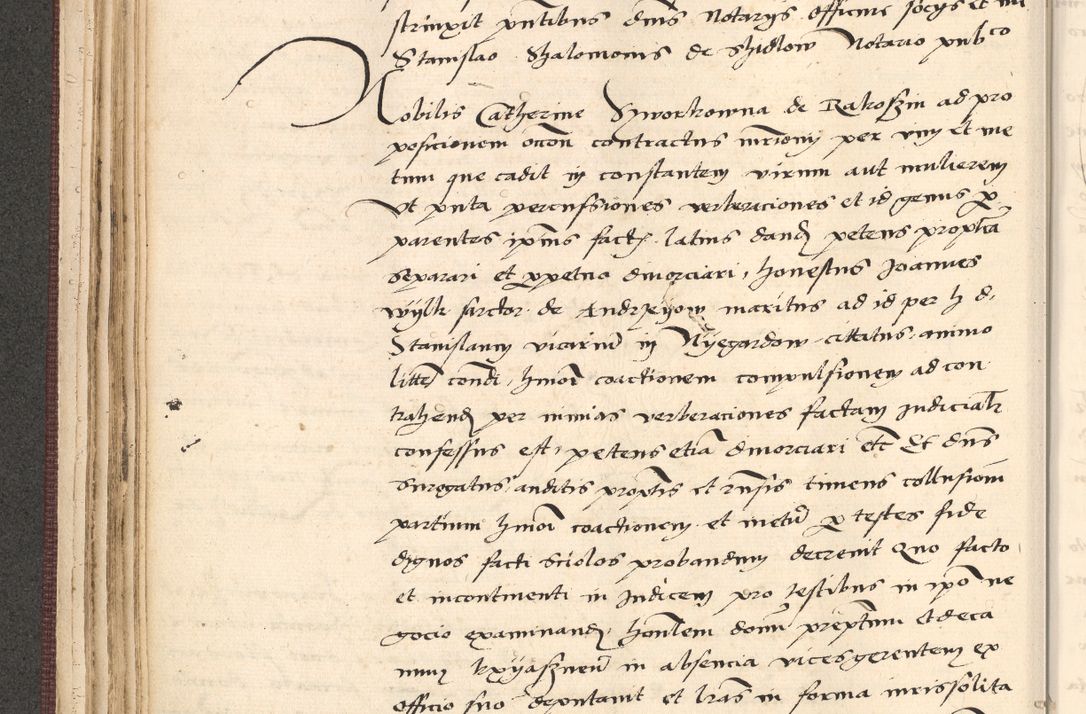 strinxit pntibus dnis Notarys officine socys et mi
Stanislao Shalomonis de Shidlow Notario pubco
Nobilis Catherine Syworkowna de Rakoszin ad pro
posicionem occon contractus mrionij per vim et me
tum que cadit in constantem virum aut mulierem
vt puta percussiones verberaciones et id genus p
parentes ipius fact latius dand petens proptea
separari et ppetuo divorciari, honestus Joannes
wylk sartor de Andrzeyow maritus ad id per h d
Stanislaum vicarium in Nyegardow cittatus animo
litten contdi, hmoi coactionem compulsionem ad con
trahend per nimias verberaciones factam Judicialr
confessus est, petens etia divorciari etc Et dns
surogatus auditis propotis et rnsis timens collusiom
partium hmoi coactionem et metu p testes fide
dignos facti sciolos probandum decrevit Quo facto
et incontinenti in Judicem pro testibus in ipo ne
gocio examinand, honlem dom preptum et deca
num Xxyasznen in absencia vicesgerentem ex
officio suo deputavit et lras in forma iuris solita